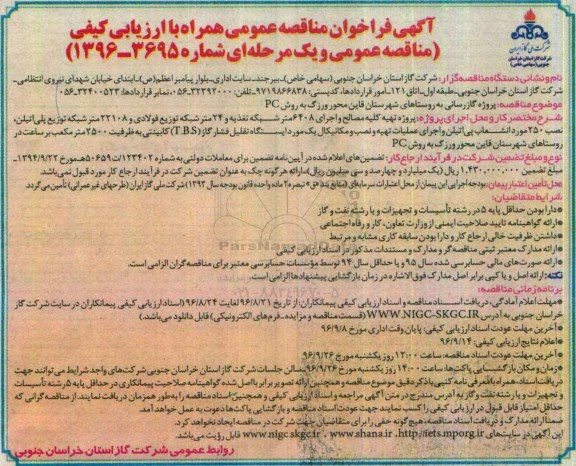 آگهی فراخوان مناقصه عمومی همراه با ارزیابی کیفی
(مناقصه عمومی و یک مرحله‌ای شماره ۳۶۹۵-۱۳۹۶)
شرکت ملی گاز ایران
شرکت گاز استان خراسان جنوبی (سهامی خاص)
نام و نشانی دستگاه مناقصه‌گزار: شرکت گاز استان خراسان جنوبی (سهامی خاص)ـ بیرجند، سایت اداری، بلوار پیامبر اعظم(ص)، ابتدای خیابان شهدای نیروی انتظامی،
شرکت گاز استان خراسان جنوبی، طبقه اول، اتاق ۱۲۱ـ امور قراردادها، کدپستی: ۹۷۱۹۸۶۶۸۳۸ـ تلفن: ۳۲۳۹۲۰۰۰-۰۵۶، نمابر قراردادها: ۳۲۴۰۰۵۲۳-۰۵۶
موضوع مناقصه: پروژه گازرسانی به روستاهای شهرستان قاین محور ورزگ به روش PC
شرح مختصر کار و محل اجرای پروژه: پروژه تهیه کلیه مصالح و اجرای ۶۴۰۸ متر شبکه تغذیه و ۲۴ متر شبکه توزیع فولادی و ۲۲۱۰۸ متر شبکه توزیع پلی‌اتیلن،
نصب ۲۵۰ مورد انشعاب پلی‌اتیلن و اجرای عملیات تهیه و نصب و مکانیکال یک مورد ایستگاه تقلیل فشار گاز (T.B.S) کابینتی به ظرفیت ۲۵۰۰ متر مکعب بر ساعت در
روستاهای شهرستان قاین محور ورزگ به روش PC
نوع و مبلغ تضمین شرکت در فرآیند ارجاع کار: تضمین‌های اعلام شده در آیین‌نامه تضمین برای معاملات دولتی به شماره ۱۲۳۴۰۲/ت۵۰۶۵۹هـ مورخ ۱۳۹۴/۹/۲۲
مبلغ تضمین ۱,۴۳۰,۰۰۰,۰۰۰ ریال (یک میلیارد و چهارصد و سی میلیون ریال). ارائه هر گونه چک به عنوان تضمین شرکت در فرآیند ارجاع کار مورد قبول نمی‌باشد.
محل تأمین اعتبار پیمان: بودجه اجرایی این پیمان از محل اعتبارات سرمایه‌ای (منابع بند «ق» تبصره ۲ ماده واحده قانون بودجه سال ۱۳۹۳) شرکت ملی گاز ایران (طرح‎های غیر عمرانی) تأمین می‌گردد.
شرایط متقاضیان:
*دارا بودن حداقل پایه ۵ در رشته تأسیسات و تجهیزات و یا رشته نفت و گاز
*ارائه گواهینامه تایید صلاحیت ایمنی از وزارت تعاون، کار و رفاه اجتماعی
*داشتن ظرفیت خالی ارجاع کار و دارا بودن سابقه کاری مشابه و مرتبط
*ارائه مدارک معتبر ثبتی مناقصه‌گر و مدارک و مستندات مذکور در اسناد ارزیابی کیفی
*ارائه صورت‌های مالی حسابرسی شده سال ۹۵ و یا حداقل سال ۹۴ توسط مؤسسات حسابرسی معتبر برای مناقصه‌گران الزامی است.
نکته: ارائه اصل و یا کپی برابر اصل مدارک فوق الاشاره در زمان بازگشایی پیشنهادها الزامی است.
برنامه زمانی مناقصه:
*مهلت اعلام آمادگی، دریافت اسناد مناقصه و اسناد ارزیابی کیفی پیمانکاران: از تاریخ ۹۶/۸/۲۱ لغایت ۹۶/۸/۲۴ (اسناد ارزیابی کیفی پیمانکاران در سایت شرکت گاز
خراسان جنوبی به آدرس WWW.NIGC-SKGC.IR (قسمت مناقصه و مزایده ـ فرم‌های الکترونیکی) قابل دانلود می‌باشد.)
*آخرین مهلت عودت اسناد ارزیابی کیفی: پایان وقت اداری مورخ ۹۶/۹/۸
*اعلام نتایج ارزیابی کیفی: ۹۶/۹/۱۴
*آخرین مهلت عودت اسناد مناقصه: ساعت ۱۳:۰۰ روز یکشنبه مورخ ۹۶/۹/۲۶
*زمان و مکان بازگشایی پاکت‌ها: ساعت ۱۴:۰۰ روز یکشنبه مورخ ۹۶/۹/۲۶، سالن جلسات شرکت گاز استان خراسان جنوبی شرکت‌های واجد شرایط می‌توانند جهت
دریافت اسناد، همراه با معرفی‌نامه کتبی با ذکر دقیق موضوع مناقصه و همچنین ارائه تصویر برابر با اصل شده گواهینامه صلاحیت پیمانکاری در حداقل پایه ۵ رشته تأسیسات
و تجهیزات و یا رشته نفت و گاز به آدرس مندرج در متن آگهی مراجعه و اسناد ارزیابی کیفی و همچنین اسناد مناقصه را به‌طور همزمان دریافت نمایند. از مناقصه گرانی که
حداقل امتیاز قابل قبول در ارزیابی کیفی را کسب نمایند جهت عودت اسناد مناقصه و بازگشایی پاکت‌ها دعوت به عمل خواهد آمد.
ضمناً ارائه مدارک و دریافت اسناد مناقصه، هیچ‌گونه حقی را برای متقاضیان جهت شرکت در مناقصه ایجاد نخواهد کرد.
این آگهی در سایت‌های http://iets.mporg.ir، www.shana.ir، www.nigc.skgc.ir قابل رؤیت می‌باشد.
روابط عمومی شرکت گاز استان خراسان جنوبی